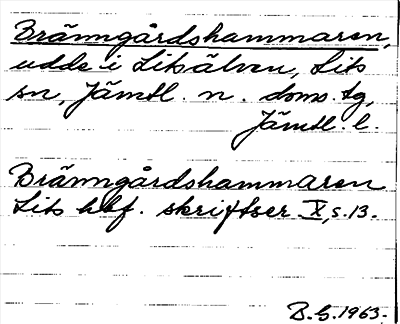 Bränngårdshammaren,
udde i Litsälven, Lits
sn, Jämtl. n. doms. tg,
Jämtl. l.
Bränngårdshammaren
Lits hbf. skriftser X, s. 13.
B.G. 1963.